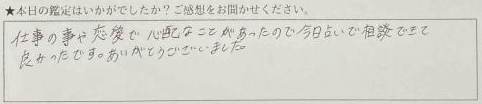 ★本日の鑑定はいかがでしたか?ご感想をお聞かせください。
仕事の事や恋愛で心配なことがあったので今日占いで相談できて
良かったです。ありがとうございました。